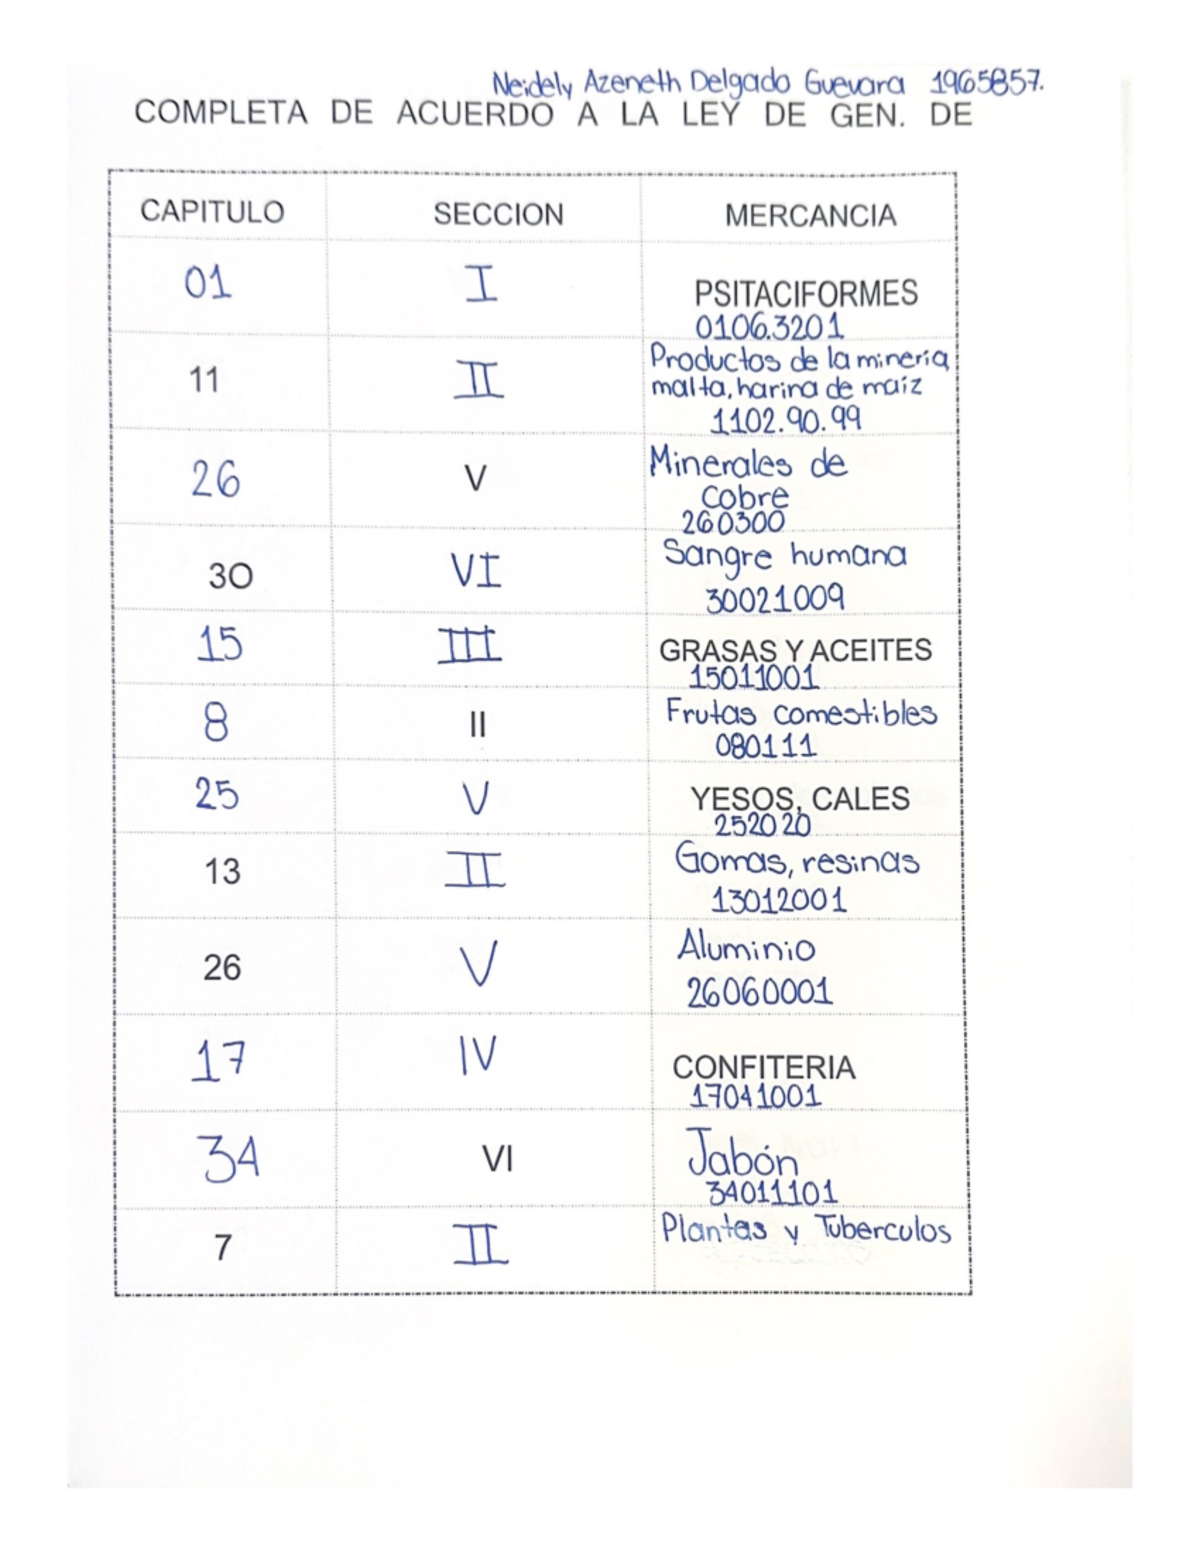 Neidely Azeneth Delgado Guevara 1965857.
COMPLETA DE ACUERDO A LA LEY DE GEN. DE
CAPITULO SECCION MERCANCIA
01 I PSITACIFORMES
0106.3201
11 II Productos de la mineria,
malta, harina de maiz
1102.90.99
26 V Minerales de
Cobre
260300
30 VI Sangre humana
30021009
15 III GRASAS Y ACEITES
15011001
8 II Frutas comestibles
080111
25 V YESOS, CALES
252020
13 II Gomas, resinas
13012001
26 V Aluminio
26060001
17 IV CONFITERIA
17041001
34 VI Jabón
34011101
7 II Plantas y Tuberculos